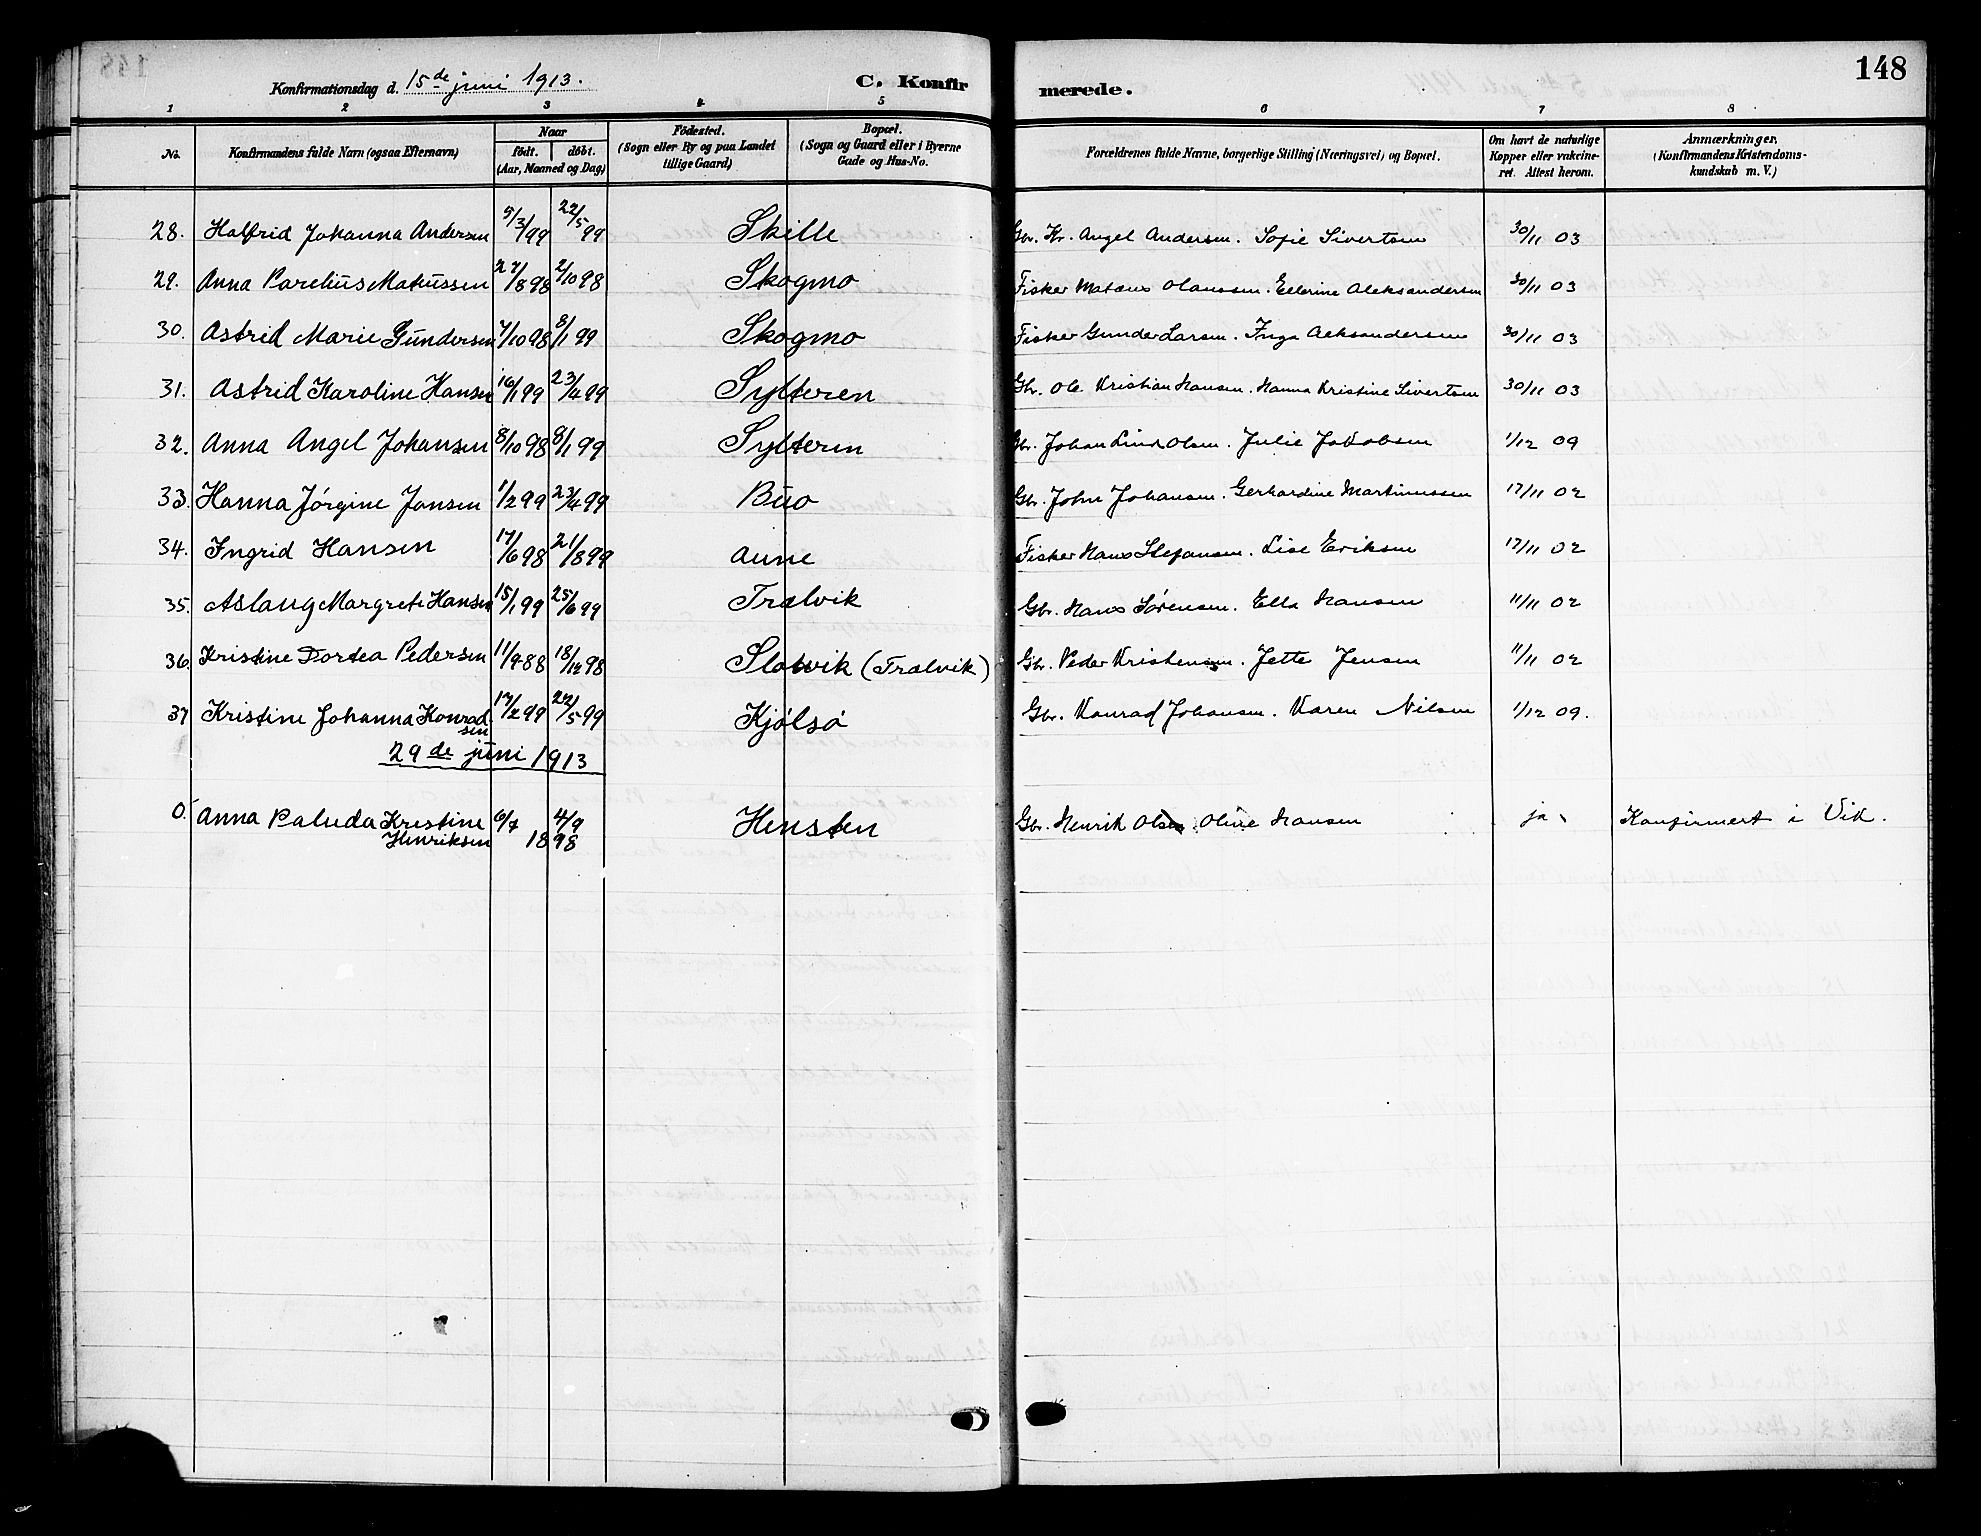 148
Konfirmationsdag d. 15de juni 1913.
C. Konfirmerede.
1 2 3 4 5 6 7 8
No.
Konfirmandens fulde Navn (ogsaa Efternavn)
Naar
født. døbt.
(Aar, Maaned og Dag)
Fødested.
(Sogn eller By og paa Landet
tillige Gaard)
Bopæl.
(Sogn og Gaard eller i Byerne
Gade og Hus-No.
Forældrenes fulde Navne, borgerlige Stilling (Næringsvei) og Bopæl.
Om havt de naturlige
Kopper eller vakcine-
ret. Attest herom.
Anmærkninger.
(Konfirmandens Kristendoms-
kundskab m. V.)
28. Halfrid Johanna Andersen 5/3/99 22/5 99 Skille Gbr. Kr. Angel Andersen. Sofie Sivertsen 30/11 03
29. Anna Parelius Mateussen 27/8 98 2/10 98 Skogmo Fisker Mateus Olaussen. Ellerine Aleksandersen 30/11 03
30. Astrid Marie Gundersen 7/10 98 8/1 99 Skogmo Fisker Gunder Larsen. Inga Aleksandersen 30/11 03
31. Astrid Karoline Hansen 16/1 99 23/4 99 Sylteren Gbr. Ole Kristian Hansen. Hanna Kristine Sivertsen 30/11 03
32. Anna Angel Johansen 8/10 98 8/1 99 Sylteren Gbr. Johan Lind Olsen. Julie Jakobsen 1/12 09
33. Hanna Jørgine Jonsen 1/2 99 23/4 99 Buø Gbr. John Johansen. Gerhardine Martinussen 17/11 02
34. Ingrid Hansen 17/6 98 21/8 99 Aune Fisker Hans Stefansen. Lise Eriksen 17/11 02
35. Aslaug Margrete Hansen 15/1 99 25/6 99 Trælvik Gbr. Hans Sørensen. Ella Hansen 11/11 02
36. Kristine Dortea Pedersen 11/9 88 18/12 98 Slotvik (Trælvik) Gbr. Peder Kristensen. Jette Jensen 11/11 02
37 Kristine Johanna Konrad 17/2 99 22/5 99 Kjølsø Gbr. Konrad Johansen. Karen Nilsen 1/12 09.
sen
29de juni 1913
0. Anna Paluda Kristine 6/7 4/9 Hensten Gbr. Henrik Olsen Oline Hansen ja. Konfirmert i Vik.
Henriksen 1898